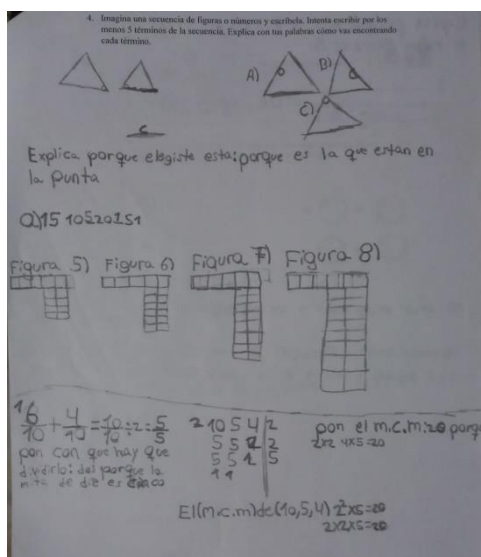 4. Imagina una secuencia de figuras o números y escríbela. Intenta escribir por los
menos 5 términos de la secuencia. Explica con tus palabras cómo vas encontrando
cada término.
A) B)
C)
c
Explica porque elegiste esta: porque es la que estan en
la punta
a) 15 10520151
Figura 5) Figura 6) Figura 7) Figura 8)
16/10 + 4/10 = 10/10 ÷ 2 = 5/5
pon con que hay que
dividirlo: dos porque la
mita de diez es cinco
2 10 5 4 | 2
5 5 2 | 2
5 5 1 | 5
1 1
pon el m.c.m: 20 porq
2x2 4x5=20
El (m.c.m) de (10,5,4) 2²x5=20
2x2x5=20